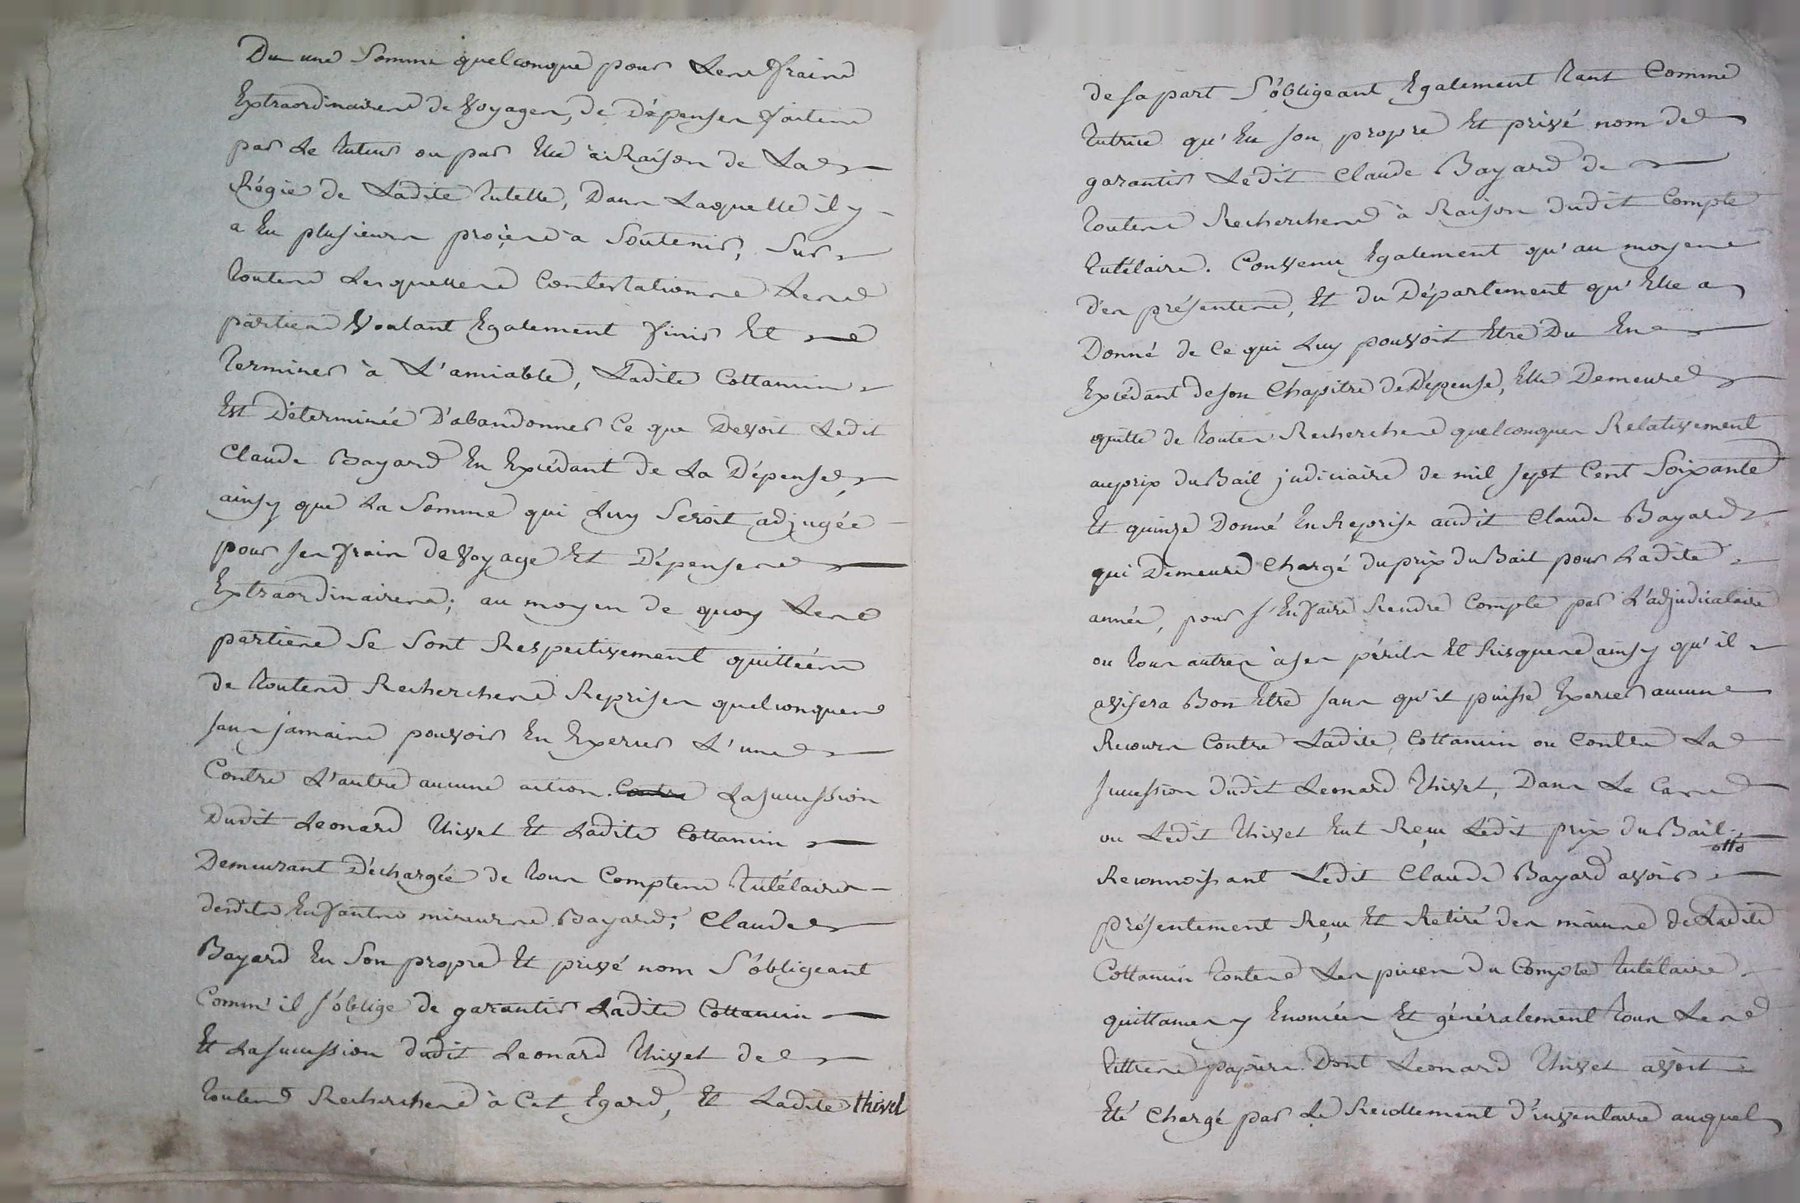 Du une Somme quelconque pour Les fraix
Extraordinaires de Voyages, de Dépenses faites
par Le tuteur ou par Elle à Raison de La
Régie de Ladite tutelle, Dans Laquelle il y
a Eu plusieurs procès à Soutenir, Sur
toutes Lesquelles Contestations Les
parties Voulant Egalement finir Et
terminer à L'amiable, Ladite Cottancin
Est Déterminée D'abandonner Ce que Devoit Ledit
Claude Bayard En Excédant de La Dépense,
ainsy que La Somme qui Luy Seroit adjugée
pour ses frais de Voyage Et Dépenses
Extraordinaires; au moyen de quoy Les
parties Se Sont Respectivement quittées
de toutes Recherches Reprises quelconques
sans jamais pouvoir En Exercer L'une
Contre L'autre aucune action. Contre La succession
Dudit Leonard thivet Et Ladite Cottancin
Demeurant Déchargée de tous Comptes tutélaires
desdits Enfants mineurs Bayard; Claude
Bayard En Son propre Et privé nom S'obligeant
Comm' il s'oblige de garantir Ladite Cottancin
Et La succession dudit Leonard thivet de
toutes Recherches à Cet Egard, Et Ladite thivet
de sa part S'obligeant Egalement tant Comme
tutrice qu'En son propre Et privé nom de
garantir Ledit Claude Bayard de
toutes Recherches à Raison dudit Compte
tutélaire. Convenu Egalement qu'au moyen
des présentes, Et du Département qu'Elle a
Donné de Ce qui Luy pouvoit Etre Du En
Excédant de son Chapitre de Dépense, Elle Demeure
quitte de toutes Recherches quelconques Relativement
au prix du Bail judiciaire de mil sept Cent Soixante
Et quinze Donné En Reprise audit Claude Bayard
qui Demeure Chargé du prix du Bail pour Ladite
année, pour s'En faire Rendre Compte par L'adjudicataire
ou tous autres à ses périls Et Risques ainsy qu'il
avisera Bon Etre sans qu'il puisse Exercer aucun
Recours Contre Ladite Cottancin ou Contre La
succession dudit Leonard thivet, Dans Le Cas
ou Ledit thivet Eut Reçu Ledit prix du Bail.
Reconnoissant Ledit Claude Bayard avoir
présentement Reçu Et Retiré des mains de Ladite
Cottancin toutes Les pieces du Compte tutélaire
quittances y Enoncées Et généralement tous Les
tittres papiers Dont Leonard thivet avoit
Eté Chargé par Le Recollement d'inventaire auquel